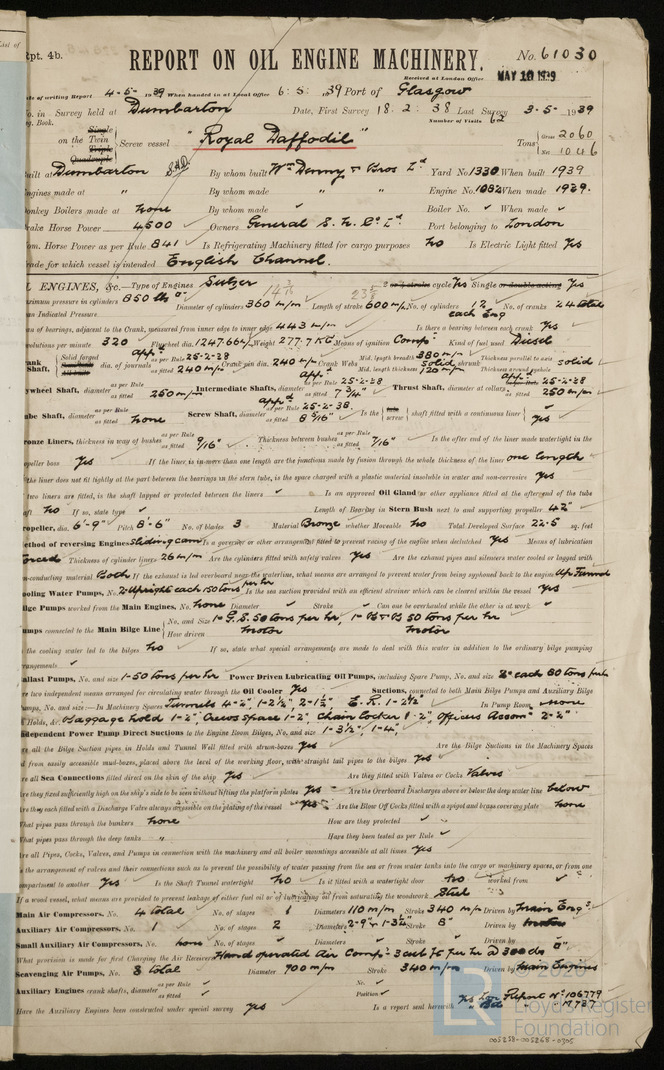 Rpt. 4b.
REPORT ON OIL ENGINE MACHINERY.
No. 61030
Received at London Office MAY 10 1939
Date of writing Report 4-5-1939 When handed in at Local Office 6.5.1939 Port of Glasgow
No. in Survey held at Dumbarton Date, First Survey 18.2.38 Last Survey 3-5-1939
Reg. Book. Number of Visits 62
on the Single Twin Triple Quadruple Screw vessel "Royal Daffodil" Tons Gross 2060 Net 1046
Built at Dumbarton By whom built Wm Denny & Bros Ld Yard No. 1330 When built 1939
Engines made at " By whom made " " Engine No. 1082 When made 1939.
Donkey Boilers made at none By whom made ✓ Boiler No. ✓ When made ✓
Brake Horse Power 4500 Owners General S. N. Co Ld Port belonging to London
Nom. Horse Power as per Rule 841 Is Refrigerating Machinery fitted for cargo purposes no Is Electric Light fitted Yes
Trade for which vessel is intended English Channel.
OIL ENGINES, &c.—Type of Engines Sulzer 2 or 4 stroke cycle Yes Single or double acting Yes
Maximum pressure in cylinders 850 lbs Diameter of cylinders 360 m/m Length of stroke 600 m/m No. of cylinders 12 each Eng No. of cranks 24 total
Mean Indicated Pressure
Span of bearings, adjacent to the Crank, measured from inner edge to inner edge 443 m/m Is there a bearing between each crank Yes
Revolutions per minute 320 Flywheel dia. 1247.66 m/m Weight 277.7 KG Means of ignition Comp Kind of fuel used Diesel
Crank Shaft, Solid forged dia. of journals as per Rule appd 25-2-38 as fitted 240 m/m Crank pin dia. 240 m/m Crank Webs Mid. length breadth 380 m/m Mid. length thickness 120 m/m shrunk solid Thickness parallel to axis solid
Flywheel Shaft, diameter as per Rule as fitted 250 m/m Intermediate Shafts, diameter as per Rule appd 25-2-38 as fitted 7 3/4" Thrust Shaft, diameter at collars as per Rule appd 25-2-38 as fitted 250 m/m
Tube Shaft, diameter as per Rule as fitted none Screw Shaft, diameter as per Rule appd 25-2-38. as fitted 8 5/16" Is the tube screw shaft fitted with a continuous liner Yes
Bronze Liners, thickness in way of bushes as per Rule as fitted 9/16" Thickness between bushes as per Rule as fitted 7/16" Is the after end of the liner made watertight in the
propeller boss Yes If the liner is in more than one length are the junctions made by fusion through the whole thickness of the liner one length
If the liner does not fit tightly at the part between the bearings in the stern tube, is the space charged with a plastic material insoluble in water and non-corrosive Yes
If two liners are fitted, is the shaft lapped or protected between the liners ✓ Is an approved Oil Gland or other appliance fitted at the after end of the tube
shaft no If so, state type ✓ Length of Bearing in Stern Bush next to and supporting propeller 42"
Propeller, dia. 6'-9" Pitch 8'-6" No. of blades 3 Material Bronze whether Moveable no Total Developed Surface 22.5 sq. feet
Method of reversing Engines Sliding cam Is a governor or other arrangement fitted to prevent racing of the engine when declutched Yes Means of lubrication
forced Thickness of cylinder liners 26 m/m Are the cylinders fitted with safety valves Yes Are the exhaust pipes and silencers water cooled or lagged with
non-conducting material Both If the exhaust is led overboard near the waterline, what means are arranged to prevent water from being syphoned back to the engine Up Funnel
Cooling Water Pumps, No. 2-Upright each 150 tons per hr Is the sea suction provided with an efficient strainer which can be cleared within the vessel Yes
Bilge Pumps worked from the Main Engines, No. none Diameter ✓ Stroke ✓ Can one be overhauled while the other is at work ✓
Pumps connected to the Main Bilge Line No. and Size 1-G.S. 50 tons per hr, 1-B & B 50 tons per hr
How driven motor motor
Is the cooling water led to the bilges no If so, state what special arrangements are made to deal with this water in addition to the ordinary bilge pumping
arrangements ✓
Ballast Pumps, No. and size 1-50 tons per hr Power Driven Lubricating Oil Pumps, including Spare Pump, No. and size 2 each 80 tons per hr
Are two independent means arranged for circulating water through the Oil Cooler Yes Suctions, connected to both Main Bilge Pumps and Auxiliary Bilge
Pumps, No. and size:—In Machinery Spaces Tunnels 4-2", 1-2½", 2-1½", E.R. 1-2½" In Pump Room none
In Holds, &c. Baggage hold 1-2", Crews space 1-2", Chain locker 1-2", Officers Accom 2-2"
Independent Power Pump Direct Suctions to the Engine Room Bilges, No. and size 1-3½", 1-4"
Are all the Bilge Suction pipes in Holds and Tunnel Well fitted with strum-boxes Yes Are the Bilge Suctions in the Machinery Spaces
led from easily accessible mud-boxes, placed above the level of the working floor, with straight tail pipes to the bilges Yes
Are all Sea Connections fitted direct on the skin of the ship Yes Are they fitted with Valves or Cocks Valves
Are they fixed sufficiently high on the ship's side to be seen without lifting the platform plates Yes Are the Overboard Discharges above or below the deep water line below
Are they each fitted with a Discharge Valve always accessible on the plating of the vessel Yes Are the Blow Off Cocks fitted with a spigot and brass covering plate none
What pipes pass through the bunkers none How are they protected ✓
What pipes pass through the deep tanks " Have they been tested as per Rule ✓
Are all Pipes, Cocks, Valves, and Pumps in connection with the machinery and all boiler mountings accessible at all times Yes
Is the arrangement of valves and their connections such as to prevent the possibility of water passing from the sea or from water tanks into the cargo or machinery spaces, or from one
compartment to another Yes Is the Shaft Tunnel watertight no Is it fitted with a watertight door no worked from ✓
If a wood vessel, what means are provided to prevent leakage of either fuel oil or of lubricating oil from saturating the woodwork Steel
Main Air Compressors, No. 4 total No. of stages 1 Diameters 110 m/m Stroke 340 m/m Driven by Main Eng
Auxiliary Air Compressors, No. 1 No. of stages 2 Diameters 2-9" 1-3¼" Stroke 8" Driven by motor
Small Auxiliary Air Compressors, No. none No. of stages ✓ Diameters ✓ Stroke ✓ Driven by
What provision is made for first Charging the Air Receivers Hand operated Air Comp 3 cub ft per hr @ 300 lbs □"
Scavenging Air Pumps, No. 8 total Diameter 900 m/m Stroke 340 m/m Driven by Main Engines
Auxiliary Engines crank shafts, diameter as per Rule as fitted No. Position
Have the Auxiliary Engines been constructed under special survey Yes Is a report sent herewith Yes Lon Report No 106779
© 2020
LR
Lloyd's Register
Foundation
005258-005268-0305